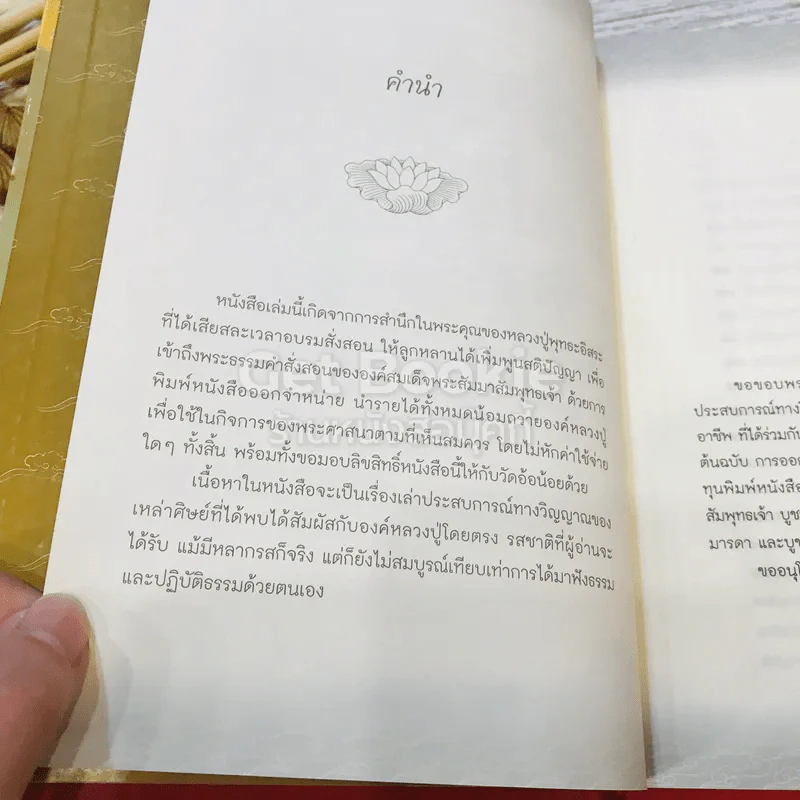 คำนำ
หนังสือเล่มนี้เกิดจากการสำนึกในพระคุณของหลวงปู่พุทธะอิสระ
ที่ได้เสียสละเวลาอบรมสั่งสอน ให้ลูกหลานได้เพิ่มพูนสติปัญญา เพื่อ
เข้าถึงพระธรรมคำสั่งสอนขององค์สมเด็จพระสัมมาสัมพุทธเจ้า ด้วยการ
พิมพ์หนังสือออกจำหน่าย นำรายได้ทั้งหมดน้อมถวายองค์หลวงปู่
เพื่อใช้ในกิจการของพระศาสนาตามที่เห็นสมควร โดยไม่หักค่าใช้จ่าย
ใดๆ ทั้งสิ้น พร้อมทั้งขอมอบลิขสิทธิ์หนังสือนี้ให้กับวัดอ้อน้อยด้วย
เนื้อหาในหนังสือจะเป็นเรื่องเล่าประสบการณ์ทางวิญญาณของ
เหล่าศิษย์ที่ได้พบได้สัมผัสกับองค์หลวงปู่โดยตรง รสชาติที่ผู้อ่านจะ
ได้รับ แม้มีหลากรสก็จริง แต่ก็ยังไม่สมบูรณ์เทียบเท่าการได้มาฟังธรรม
และปฏิบัติธรรมด้วยตนเอง
Get Bookie
ร้านหนังสือบุ๊คกี้
ขอขอบพร
ประสบการณ์ทาง
อาชีพ ที่ได้ร่วมกั
ต้นฉบับ การออก
ทุนพิมพ์หนังสือ
สัมพุทธเจ้า บูช
มารดา และบูช
ขออนุโ